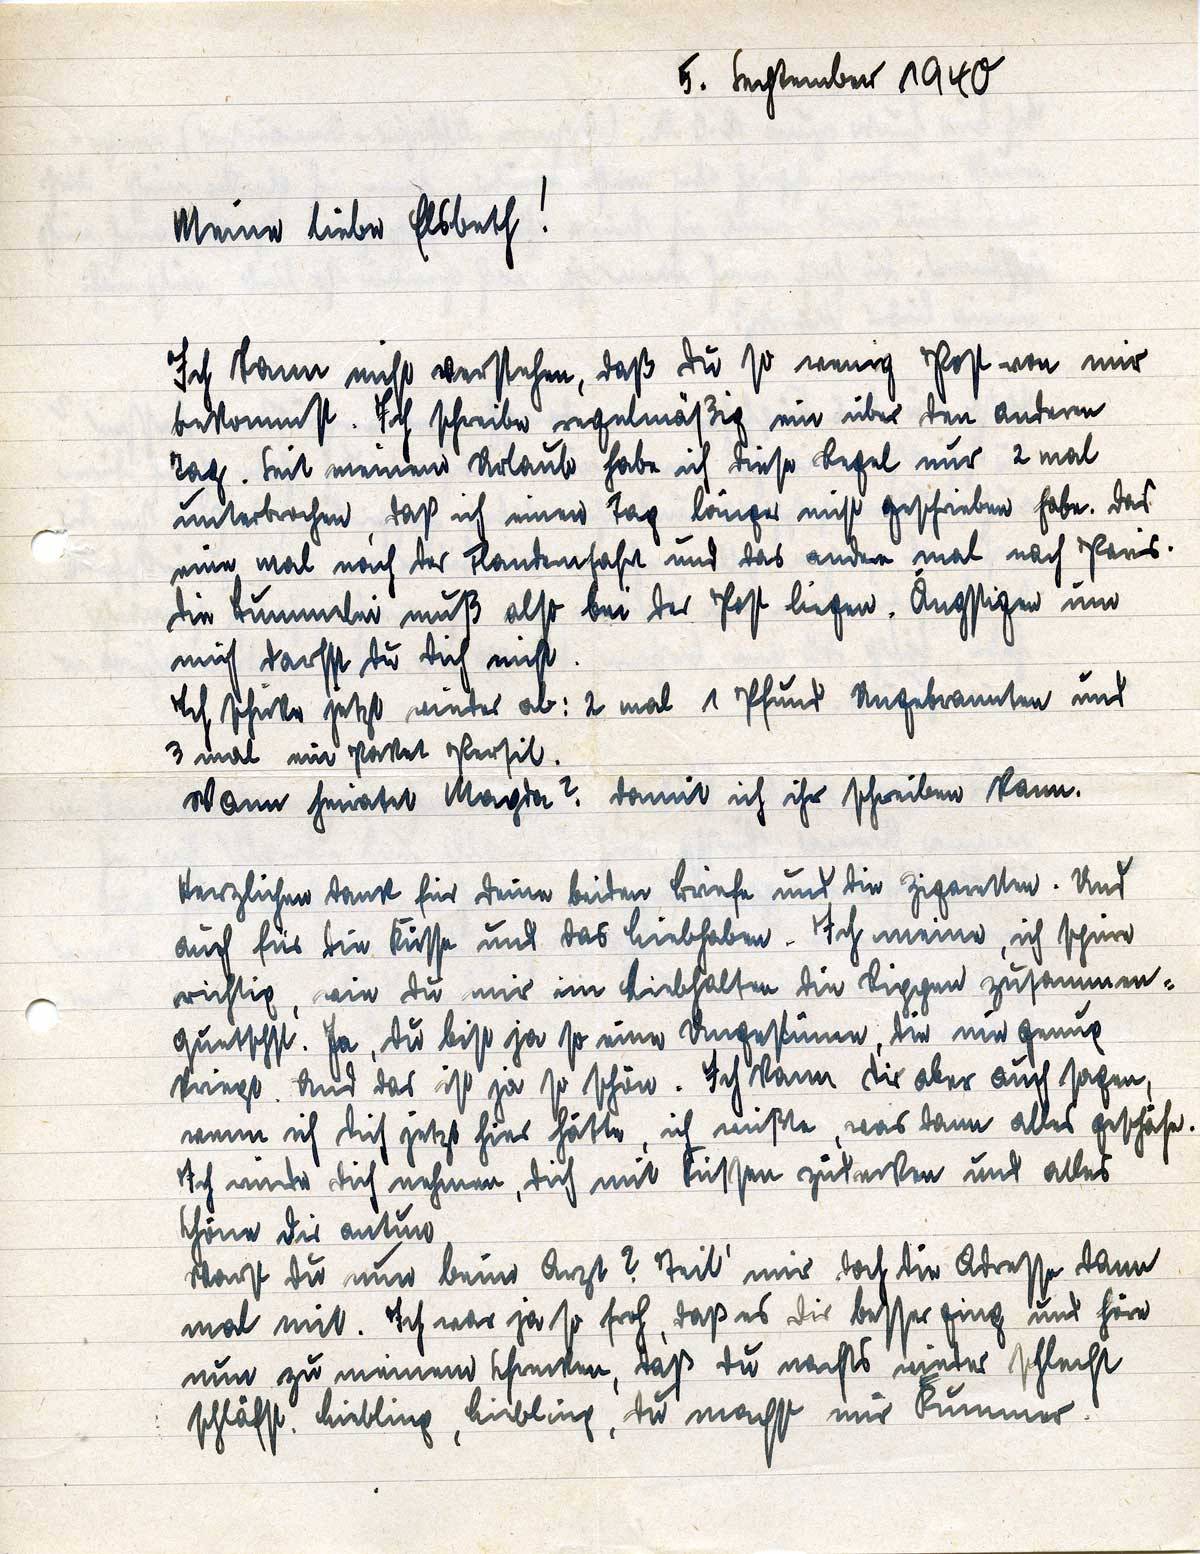 5. September 1940
Meine liebe Elsbeth!
Ich kann nicht verstehen, daß Du so wenig Post von mir
bekommst. Ich schreibe regelmäßig ein über den anderen
Tag. Seit meinem Urlaub habe ich diese Regel nur 2 mal
unterbrochen, daß ich einen Tag länger nicht geschrieben habe. Das
eine mal nach der Flandernfahrt und das andere mal nach Paris.
Die Bummelei muß also bei der Post liegen. Ängstigen um
mich darfst Du Dich nicht.
Ich schicke jetzt wieder ab: 2 mal 1 Pfund Ungebrannten und
3 mal ein Paket Persil.
Wann heiratet Magda? Damit ich ihr schreiben kann.
Herzlichen Dank für Deine beiden Briefe und die Zigaretten. Und
auch für die Küsse und das Liebhaben. Ich meine, ich spüre
richtig, wie Du mir im Liebhalten die Rippen zusammen=
quetschst. Ja, Du bist ja so eine Ungestüme, die nie genug
kriegt. Und das ist ja so schön. Ich kann Dir aber auch sagen,
wenn ich Dich jetzt hier hätte, ich wüßte, was dann alles geschähe.
Ich würde Dich nehmen, Dich mit Küssen zudecken und alles
Schöne Dir antun
Warst Du nun beim Arzt? Teil' mir doch die Adresse dann
mal mit. Ich war ja so froh, daß es Dir besser ging und höre
nun zu meinem Schrecken, daß Du nachts wieder schlecht
schläfst. Liebling, Liebling, Du machst mir Kummer.